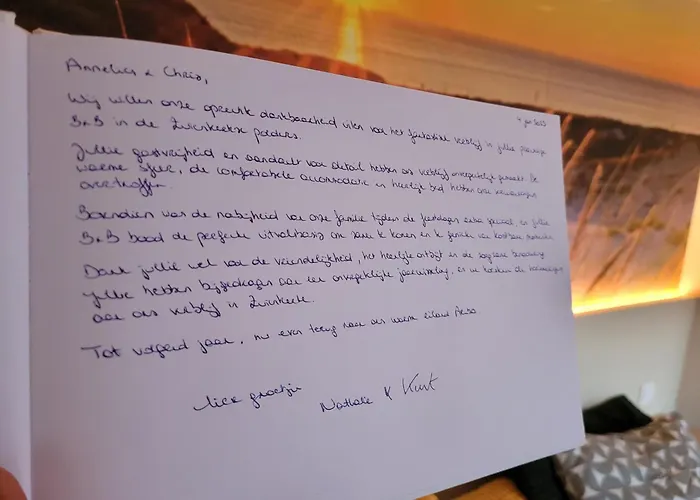 Annelies & Chris,
Wij willen onze oprechte dankbaarheid uiten voor het fantastische verblijf in jullie prachtige
B&B in de Zwinkeetse polders.
Jullie gastvrijheid en aandacht voor detail hebben ons verblijf onvergetelijk gemaakt. De
warme sfeer, de comfortabele accomodatie en heerlijk bed hebben onze verwachtingen
overtroffen.
Bovendien was de nabijheid van onze familie tijdens de feestdagen extra speciaal, en jullie
B&B bood de perfecte uitvalbasis om samen te komen en te genieten van kostbare momenten.
Dank jullie wel voor de vriendelijkheid, het heerlijke ontbijt en de
jullie hebben bijgedragen aan een onvergetelijke jaarwisseling, en we koesteren de herinneringen
aan ons verblijf in
Tot volgend jaar, nu even terug naar ons warme eiland
lieve groetjes
Nathalie & Kurt